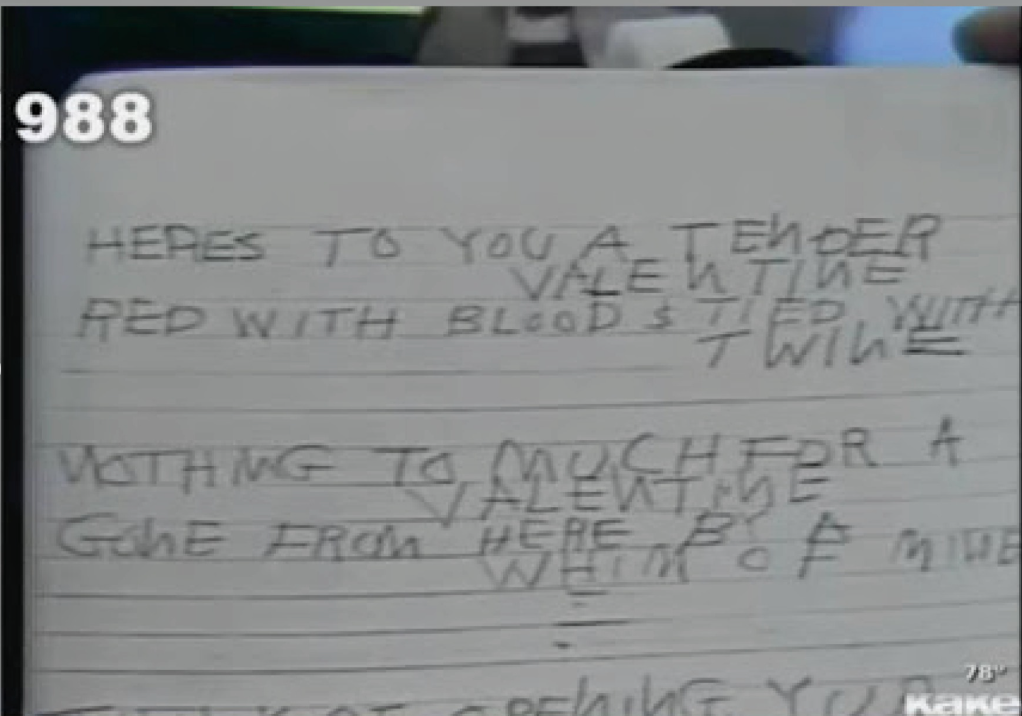 988
HERES TO YOU A TENDER
VALENTINE
RED WITH BLOOD & TIED WITH
TWINE
NOTHING TO MUCH FOR A
VALENTINE
GONE FROM HERE BY A
WHIM OF MINE
OPENING YOUR
78°
KAKE